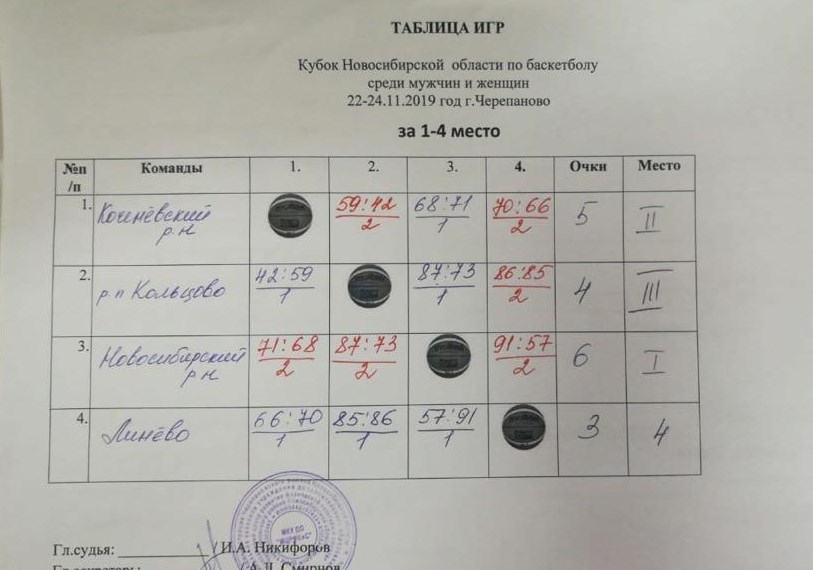 ТАБЛИЦА ИГР
Кубок Новосибирской области по баскетболу
среди мужчин и женщин
22-24.11.2019 год г.Черепаново
за 1-4 место
№п/п Команды 1. 2. 3. 4. Очки Место
1. Коченёвский р.н 59:42 2 68:71 1 70:66 2 5 II
2. р.п Кольцово 42:59 1 87:73 1 86:85 2 4 III
3. Новосибирский р.н 71:68 2 87:73 2 91:57 2 6 I
4. Линёво 66:70 1 85:86 1 57:91 1 3 4
Гл.судья: / И.А. Никифоров
Гл.секретарь / А.Л. Смирнов